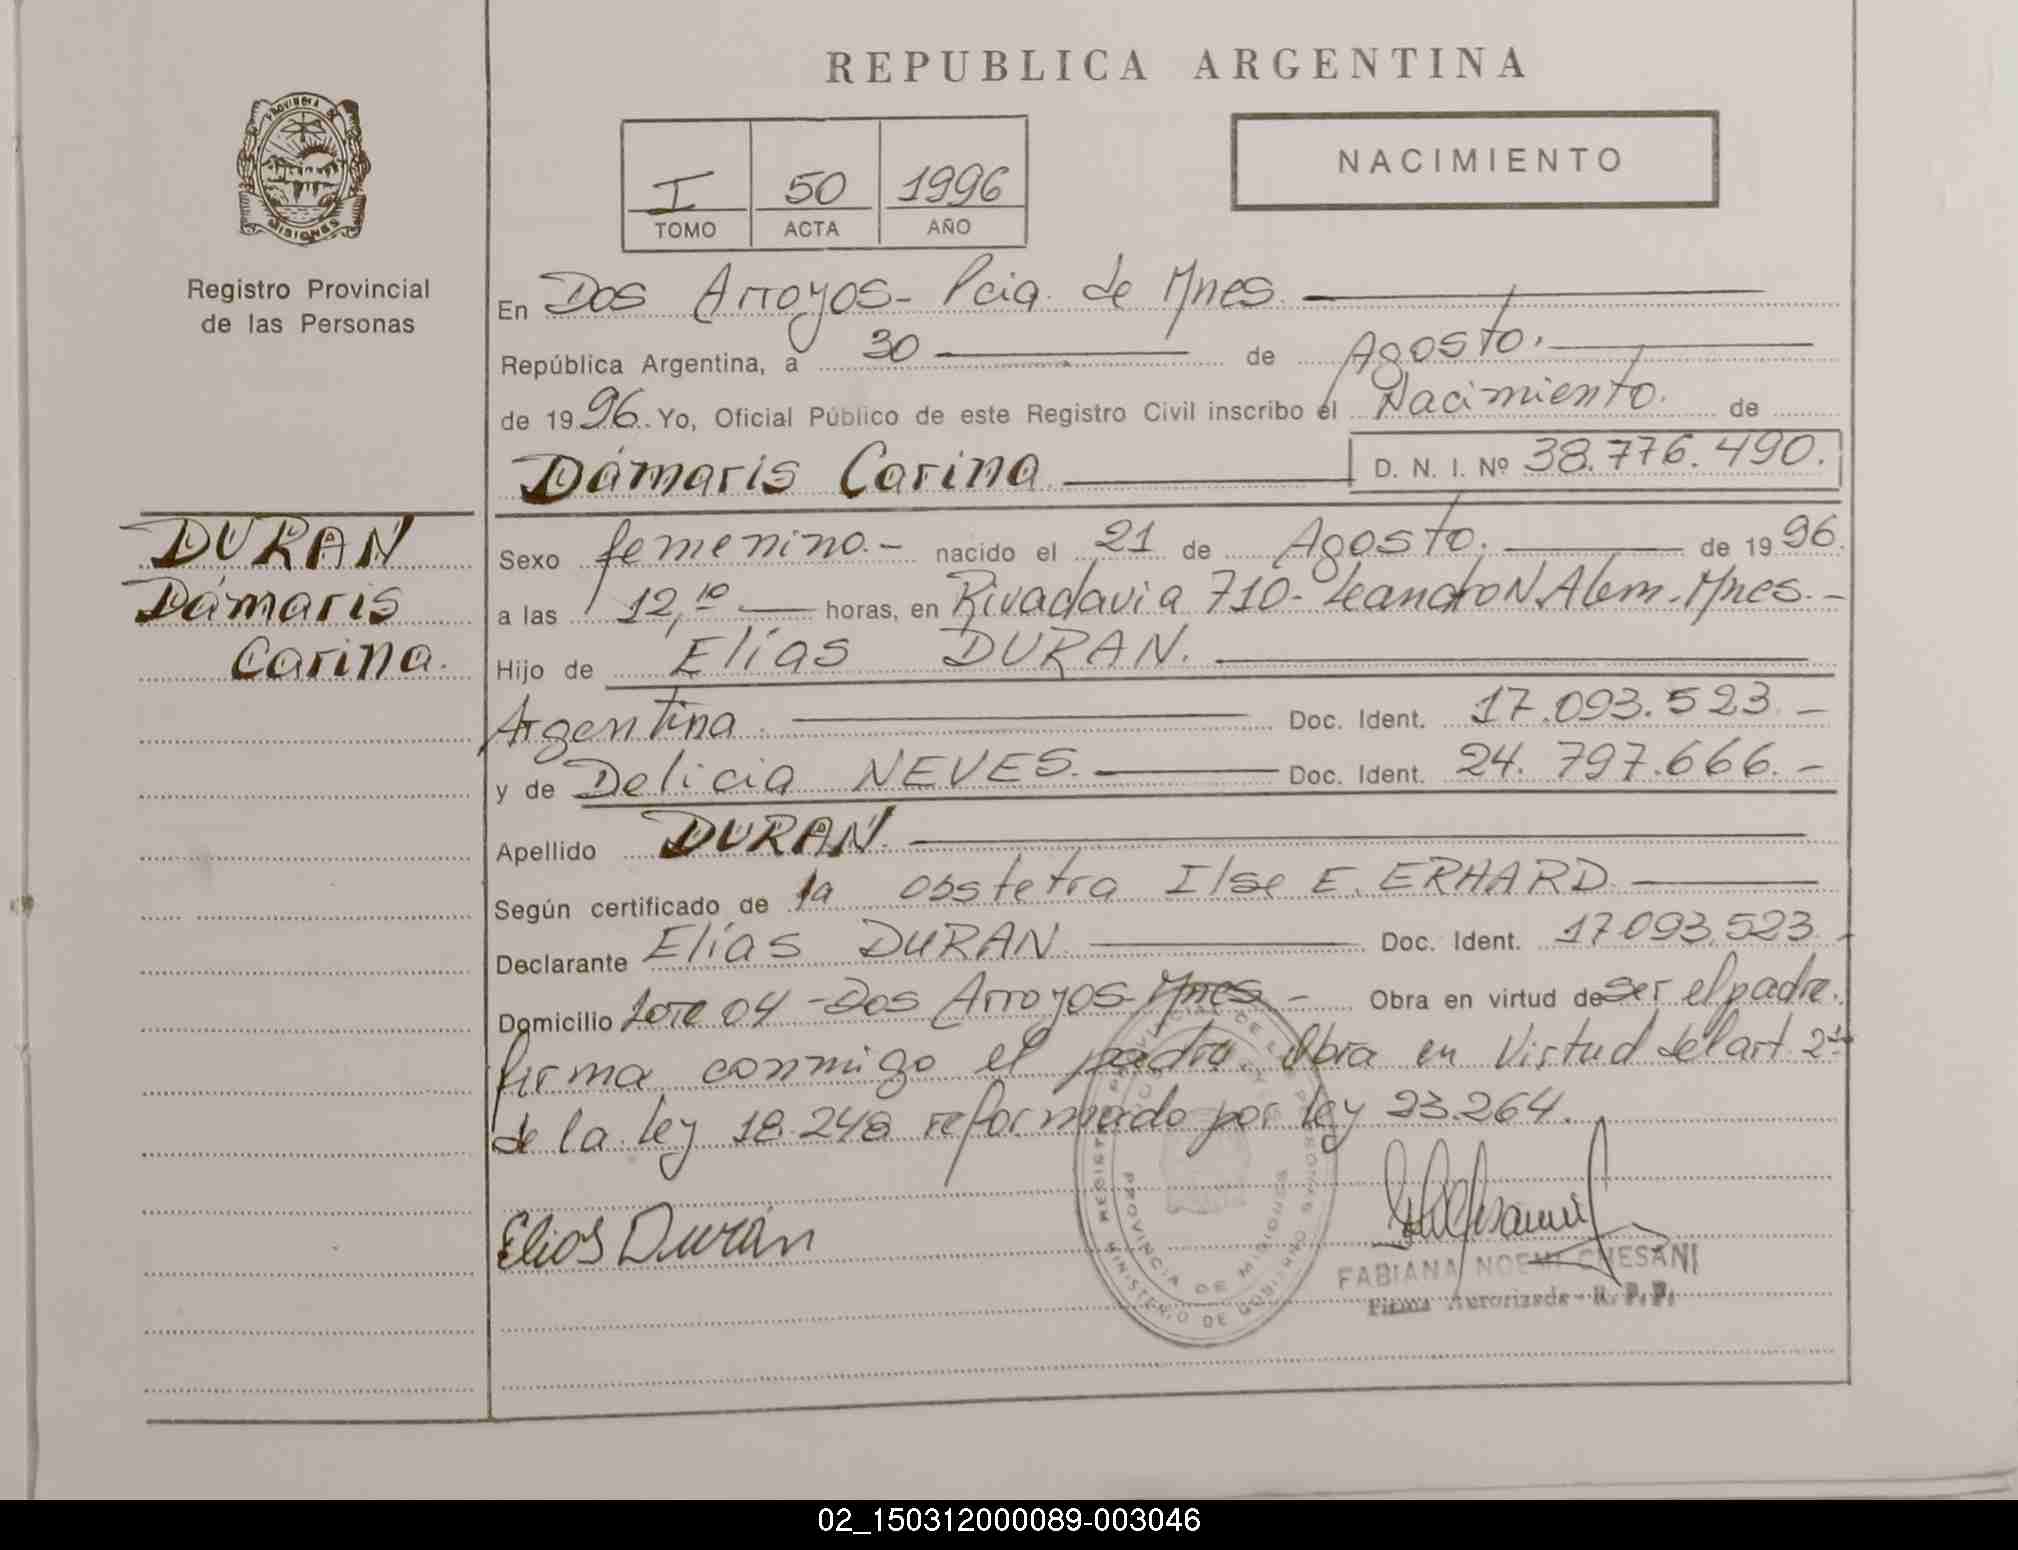 REPUBLICA ARGENTINA
PROVINCIA DE MISIONES
Registro Provincial
de las Personas
I 50 1996
TOMO ACTA AÑO
NACIMIENTO
En Dos Arroyos- Pcia. de Mnes.
República Argentina, a 30 de Agosto.
de 1996. Yo, Oficial Público de este Registro Civil inscribo el Nacimiento. de
Dámaris Carina D. N. I. Nº 38.776.490.
DURAN
Dámaris
Carina.
Sexo femenino.- nacido el 21 de Agosto. de 1996.
a las 12,10 horas, en Rivadavia 710- Leandro N. Alem. Mnes.-
Hijo de Elías DURAN.
Argentina. Doc. Ident. 17.093.523.-
y de Delicia NEVES. Doc. Ident. 24.797.666.-
Apellido DURAN.
Según certificado de la obstetra Ilse E. ERHARD.
Declarante Elías DURAN Doc. Ident. 17.093.523.-
Domicilio Lote 04 -Dos Arroyos-Mnes- Obra en virtud de ser el padre.
firma conmigo el padre Obra en Virtud del art. 2
de la ley 18.248 reformado por ley 23.264.
Elias Durán
REGISTRO PROVINCIAL DE LAS PERSONAS
MINISTERIO DE GOBIERNO
PROVINCIA DE MISIONES
FABIANA NOEMI CHESANI
Firma Autorizada - R. P. P.
02_150312000089-003046